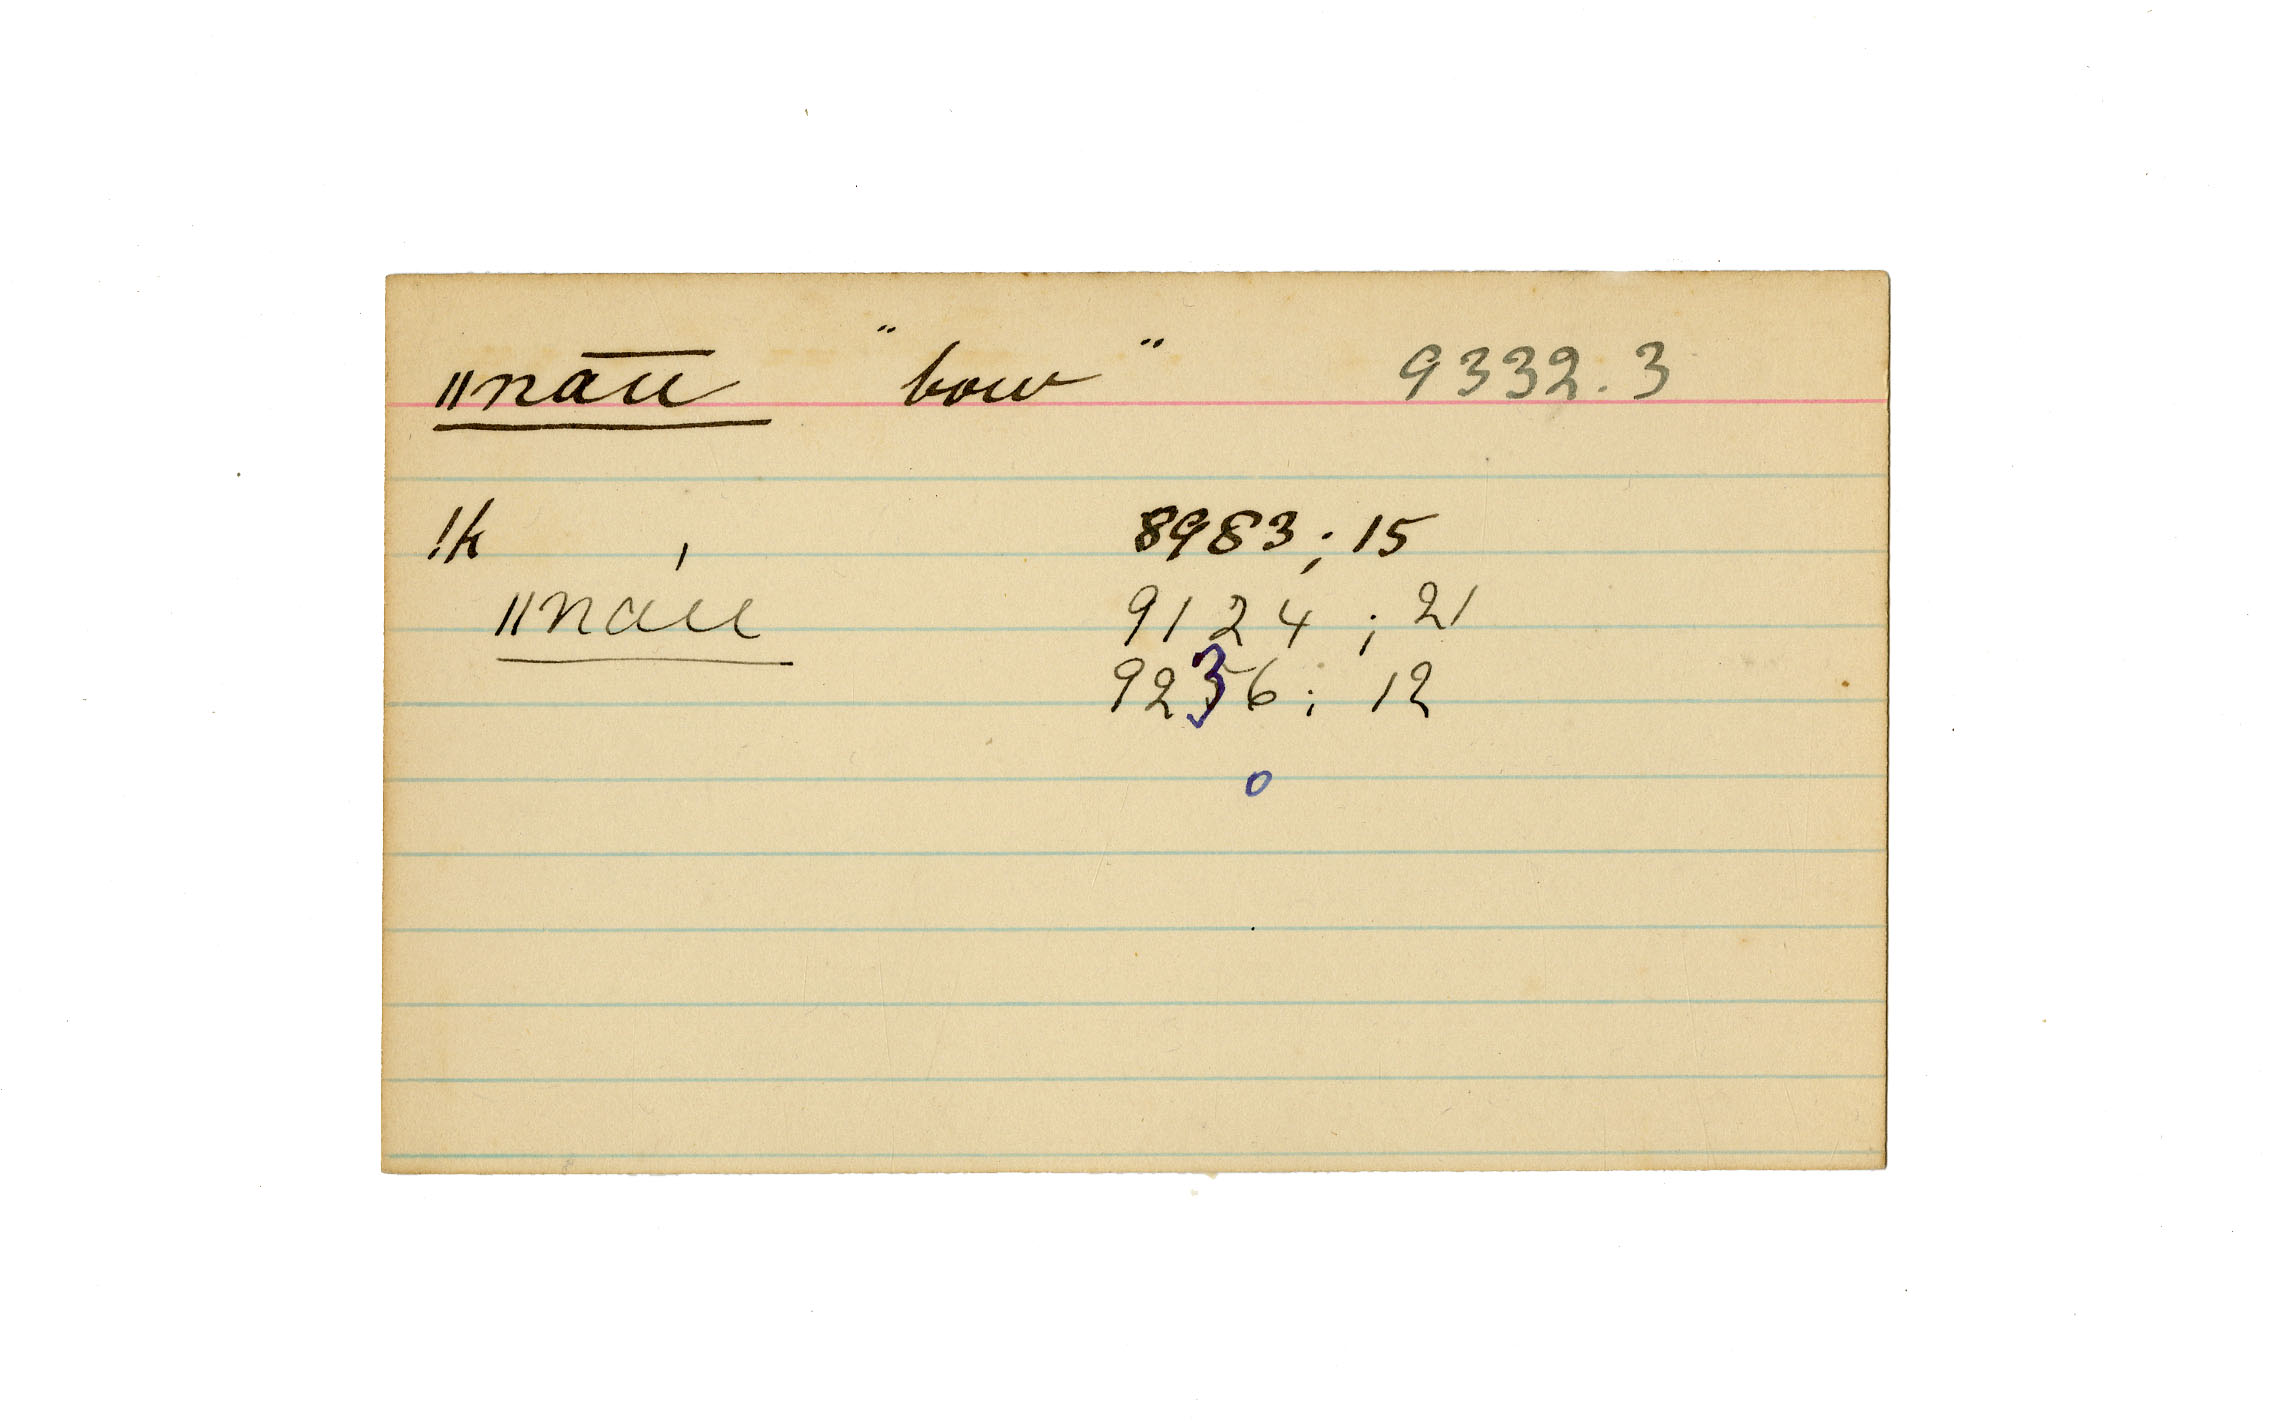 ǁnāū " bow " 9332.3
!k , 8983; 15
ǁnau 9124; 21
9236; 12
o